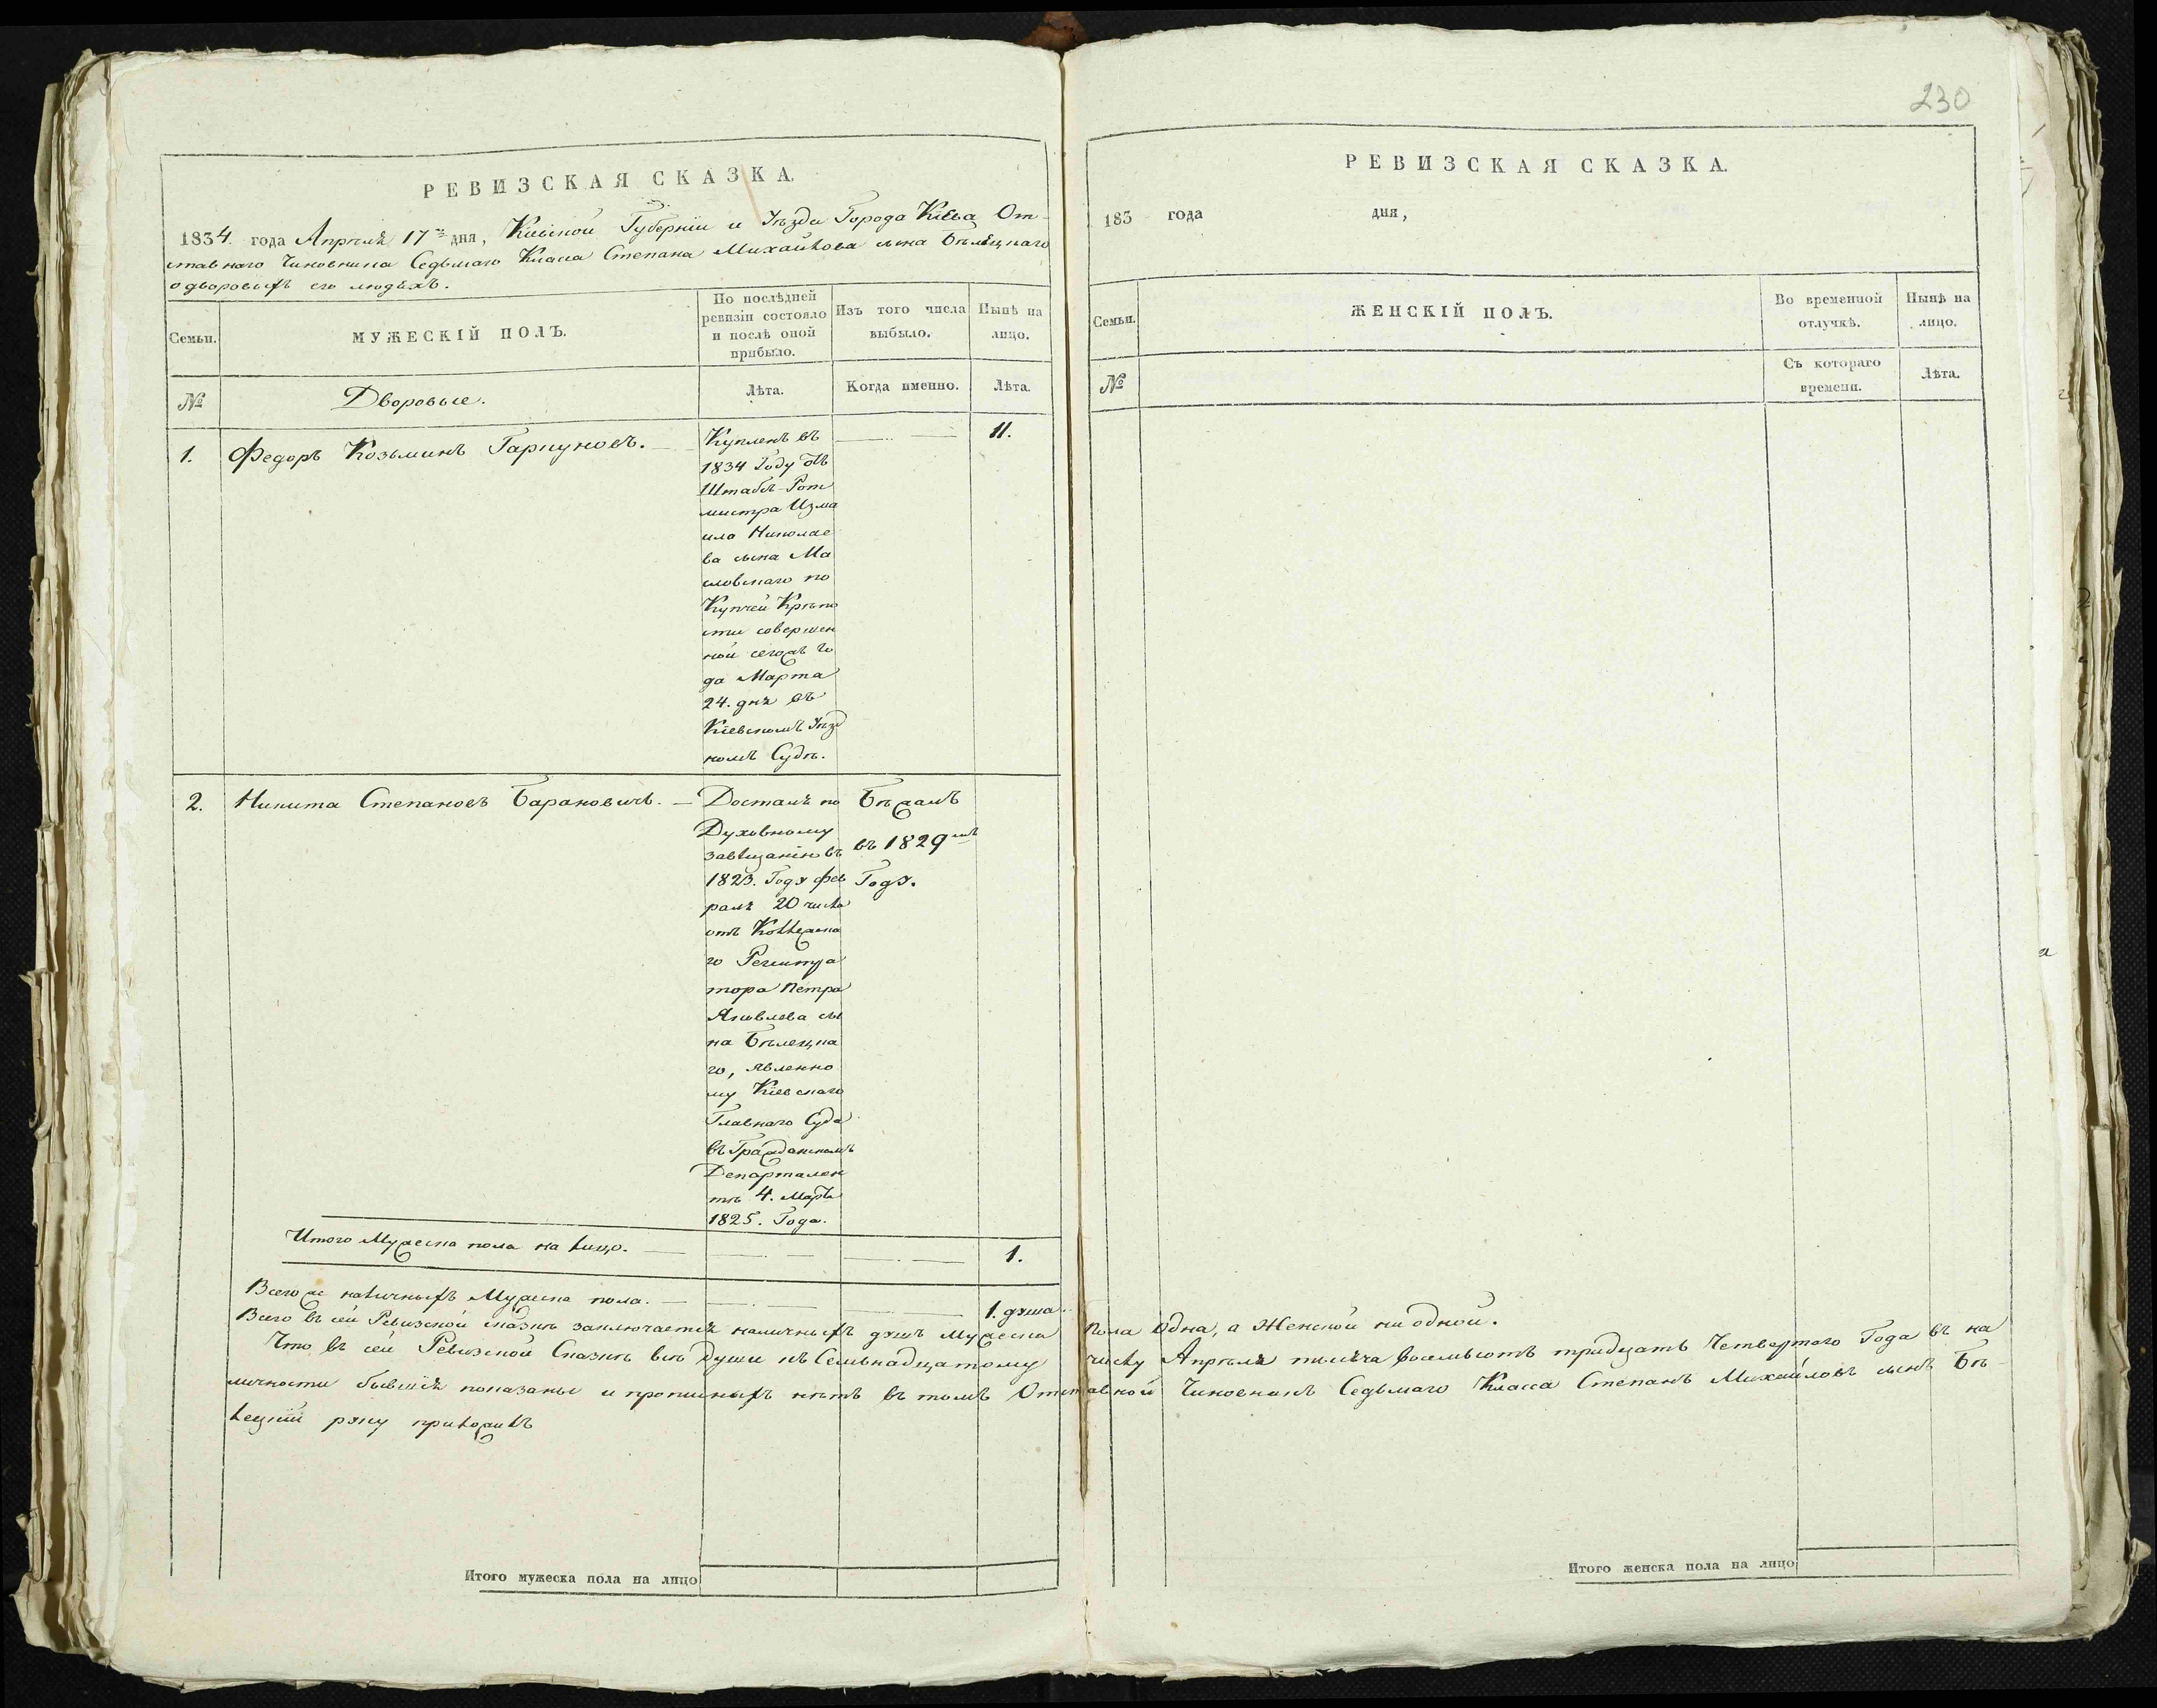 230
РЕВИЗСКАЯ СКАЗКА.
1834. года Апрѣля 17го дня, Кіевской Губерніи и Уѣзда Города Кіева От-
ставнаго Чиновника Седьмаго Класса Степана Михайлова сына Бѣлецкаго
о дворовыхъ его людяхъ.
Семьи.
МУЖЕСКІЙ ПОЛЪ.
По послѣдней
ревизіи состояло
и послѣ оной
прибыло.
Изъ того числа
выбыло.
Нынѣ на
лицо.
№
Дворовые.
Лѣта.
Когда именно.
Лѣта.
1. Федоръ Козьминъ Гарпуновъ.
Купленъ въ
1834 Году отъ
Штабсъ-Рот
мистра Изма
ила Николае
ва сына Ма
словскаго по
Купчей Крѣпо
сти совершен
ной сегожъ го
да Марта
24. дня въ
Кіевскомъ Уѣзд
номъ Судѣ.
11.
2. Никита Степановъ Барановичъ.
Досталъ по
Духовному
завѣщанію въ
1823. Году фев
раля 20 числа
отъ Коллежска
го Регистра
тора Петра
Яковлева сы
на Бѣлецка
го, явленно
му Кіевскаго
Главнаго Суда
въ Гражданскомъ
Департамен
тѣ 4. Марта
1825. Года.
Бѣжалъ
въ 1829мъ
Году.
Итого Мужеска пола на лицо.
1.
Всего же наличныхъ Мужеска пола.
1. душа.
Всего въ сей Ревизской сказкѣ заключается наличныхъ душъ Мужеска пола одна, а Женской ни одной.
Что въ сей Ревизской Сказкѣ всѣ души къ Семьнадцатому числу Апрѣля тысяча восемьсотъ тридцать Четвертаго Года въ на
личности бывшія показаны и прописныхъ нѣтъ въ томъ Отставной Чиновникъ Седьмаго Класса Степанъ Михайловъ сынъ Бѣ-
лецкій руку приложилъ
Итого мужеска пола на лицо
РЕВИЗСКАЯ СКАЗКА.
183 года дня,
Семьи.
ЖЕНСКІЙ ПОЛЪ.
Во временной
отлучкѣ.
Нынѣ на
лицо.
№
Съ котораго
времени.
Лѣта.
Итого женска пола на лицо